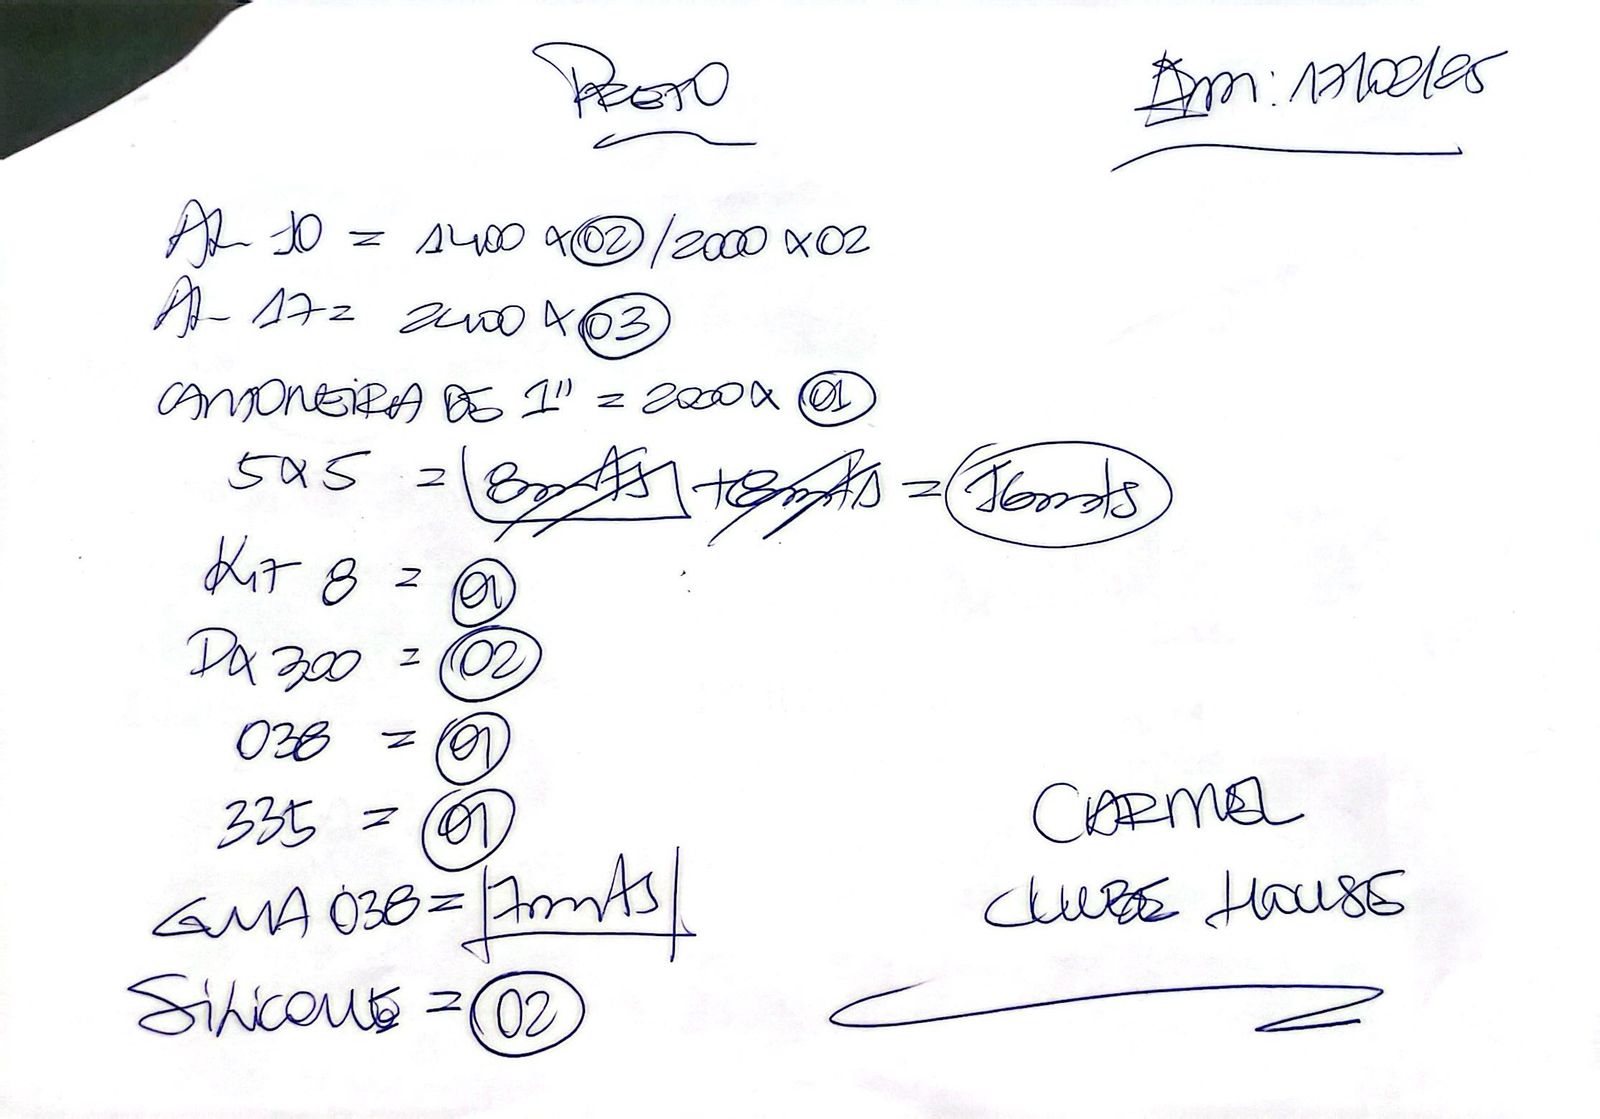 PRETO
Em: 17/02/25
AL 10 = 1400 x 02 / 2000 x 02
AL 17 = 2400 x 03
CANTONEIRA DE 1" = 2000 x 01
5x5 = 8mts + 8mts = 16mts
Kit 8 = 01
Dx 300 = 02
038 = 01
335 = 01
GUIA 038 = 7mts
SiliCONE = 02
CARMEL
CLUBE HOUSE